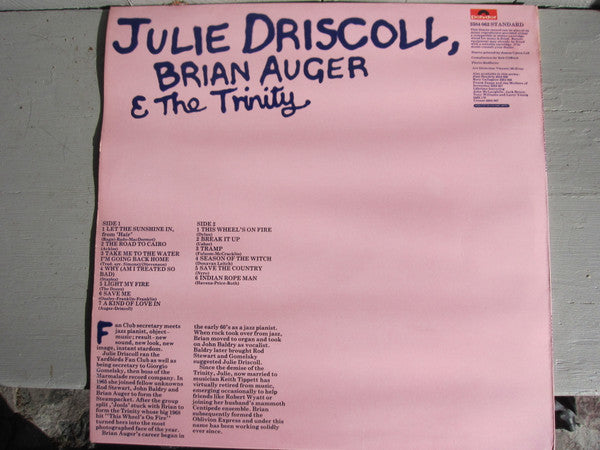 JULIE DRISCOLL,
BRIAN AUGER
& The Trinity
Polydor
2384 062 STANDARD
SIDE 1
1 LET THE SUNSHINE IN,
from 'Hair'
(Ragni-Rado-MacDermot)
2 THE ROAD TO CAIRO
(Ackles)
3 TAKE ME TO THE WATER
I'M GOING BACK HOME
4 WHY (AM I TREATED SO
BAD)
(Staples)
5 LIGHT MY FIRE
(The Doors)
6 SAVE ME
(Ousley-Franklin-Franklin)
7 A KIND OF LOVE IN
(Auger-Driscoll)
SIDE 2
1 THIS WHEEL'S ON FIRE
(Dylan)
2 BREAK IT UP
(Usher)
3 TRAMP
(Fulsom-McCracklin)
4 SEASON OF THE WITCH
(Donovan Leitch)
5 SAVE THE COUNTRY
(Nyro)
6 INDIAN ROPE MAN
(Havens-Price-Roth)
Fan Club secretary meets
jazz pianist, object -
music: result - new
sound, new look, new
image, instant stardom.
Julie Driscoll ran the
Yardbirds Fan Club as well as
being secretary to Giorgio
Gomelsky, then boss of the
Marmalade record company. In
1965 she joined fellow unknowns
Rod Stewart, John Baldry and
Brian Auger to form the
Steampacket. After the group
split, 'Jools' stuck with Brian to
form the Trinity whose big 1968
hit "This Wheel's On Fire"
turned hers into the most
photographed face of the year.
Brian Auger's career began in
the early 60's as a jazz pianist.
When rock took over from jazz,
Brian moved to organ and took
on John Baldry as vocalist.
Baldry later brought Rod
Stewart and Gomelsky
suggested Julie Driscoll.
Since the demise of the
Trinity, Julie, now married to
musician Keith Tippett has
virtually retired from music,
emerging occasionally to help
friends like Robert Wyatt or
joining her husband's mammoth
Centipede ensemble. Brian
subsequently formed the
Oblivion Express and under this
name has been working solidly
ever since.